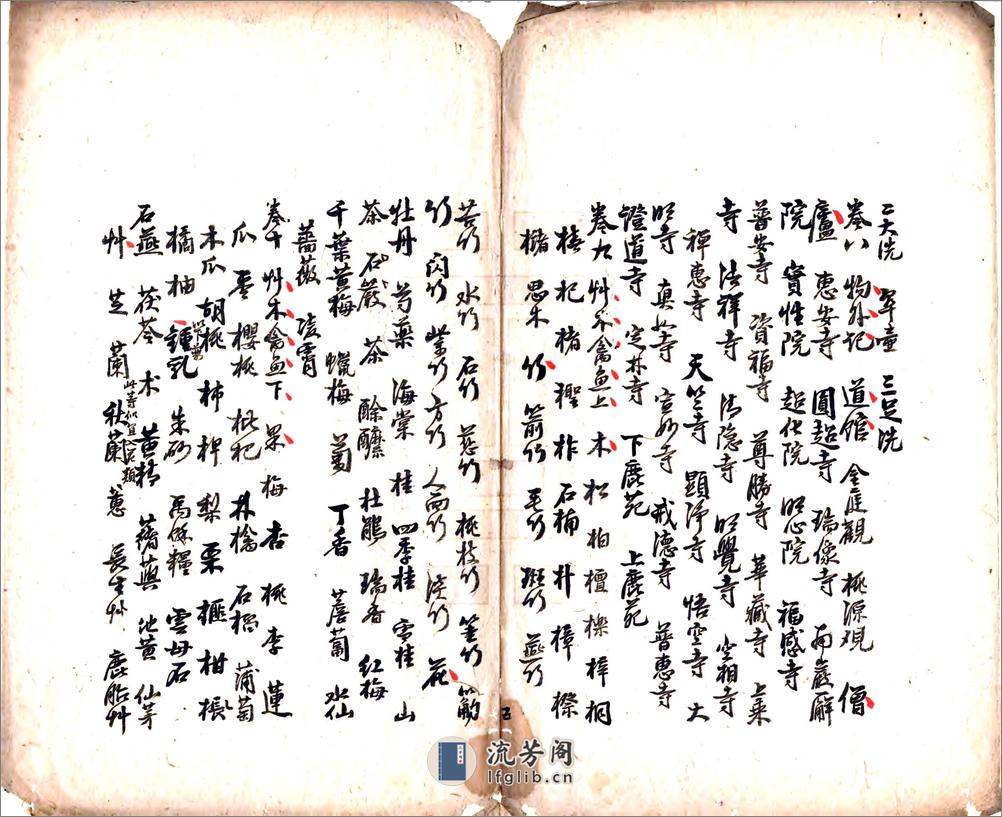 二天洗 翠童 三足洗
卷八 物外記 道館 金庭觀 桃源觀 僧
廬 惠安寺 圓超寺 瑞像寺 南巖
院 實性院 超化院 明心院 福感寺
普安寺 資福寺 尊勝寺 華藏寺 上乘
寺 法祥寺 清隱寺 明覺寺 空相寺
禪惠寺 天竺寺 顯淨寺 悟空寺 大
明寺 真如寺 宣妙寺 戒德寺 普惠寺
證道寺 定林寺 下鹿苑 上鹿苑
卷九 艸木禽魚上 木 松 柏 檀 櫟 梓 桐
椿 杞 櫧 檉 柞 石楠 朴 樟 櫾
櫧 思木 竹 箭竹 毛竹 斑竹 燕竹
苦竹 水竹 石竹 慈竹 桃枝竹 筀竹 筋
竹 閃竹 紫竹 方竹 人面竹 淡竹 花
牡丹 芍藥 海棠 桂 四季桂 雪桂 山
茶 石巖 茶 酴醾 杜鵑 瑞香 紅梅
千葉黃梅 蠟梅 菊 丁香 薝蔔 水仙
薔薇 凌霄
卷十 艸木禽魚下 果 梅 杏 桃 李 蓮
瓜 棗 櫻桃 枇杷 林檎 石榴 蒲萄
木瓜 胡桃 柿 椑 梨 栗 榧 柑 棖
橘 柚 藥 鍾乳 朱砂 禹餘糧 雲母石
石燕 茯苓 木 黃精 藷藇 地黃 仙茅
艸 芝 蘭 秋蘭 蕙 長生艸 鹿胎艸
五
流芳阁
lfglib.cn